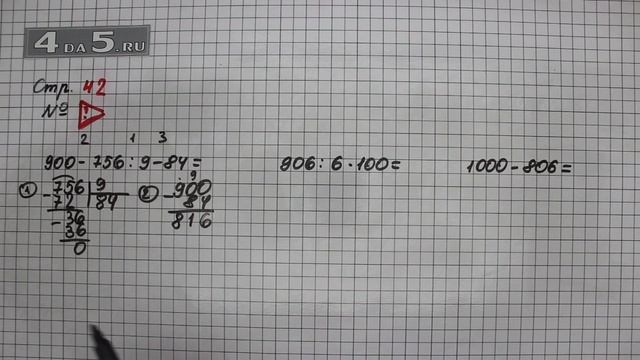 4 ДА 5.RU
Стр. 42
№ !
2 1 3
900-756:9-84= 906:6·100= 1000-806=
① 756 | 9 ② 9
- 72 | 84 - 900
- 36 84
36 816
0